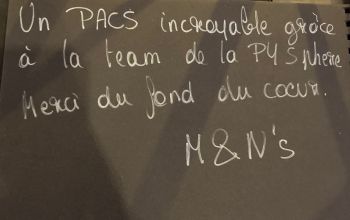 Un PACS incroyable grâce
à la team de la PYSphère
Merci du fond du cœur.
M&N's